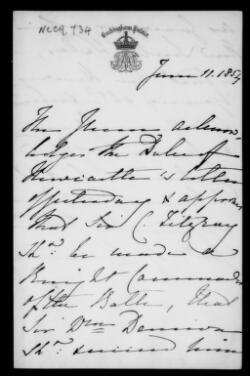 NeC9,734
Buckingham Palace
June 11. 1854
The Queen acknow-
ledges the Duke of
Newcastle's letter
of yesterday & approves
that Sir C. Fitzroy
shd. be made a
Knight Commander
of the Bath, that
Sir Wm Denison
shd. succeed him